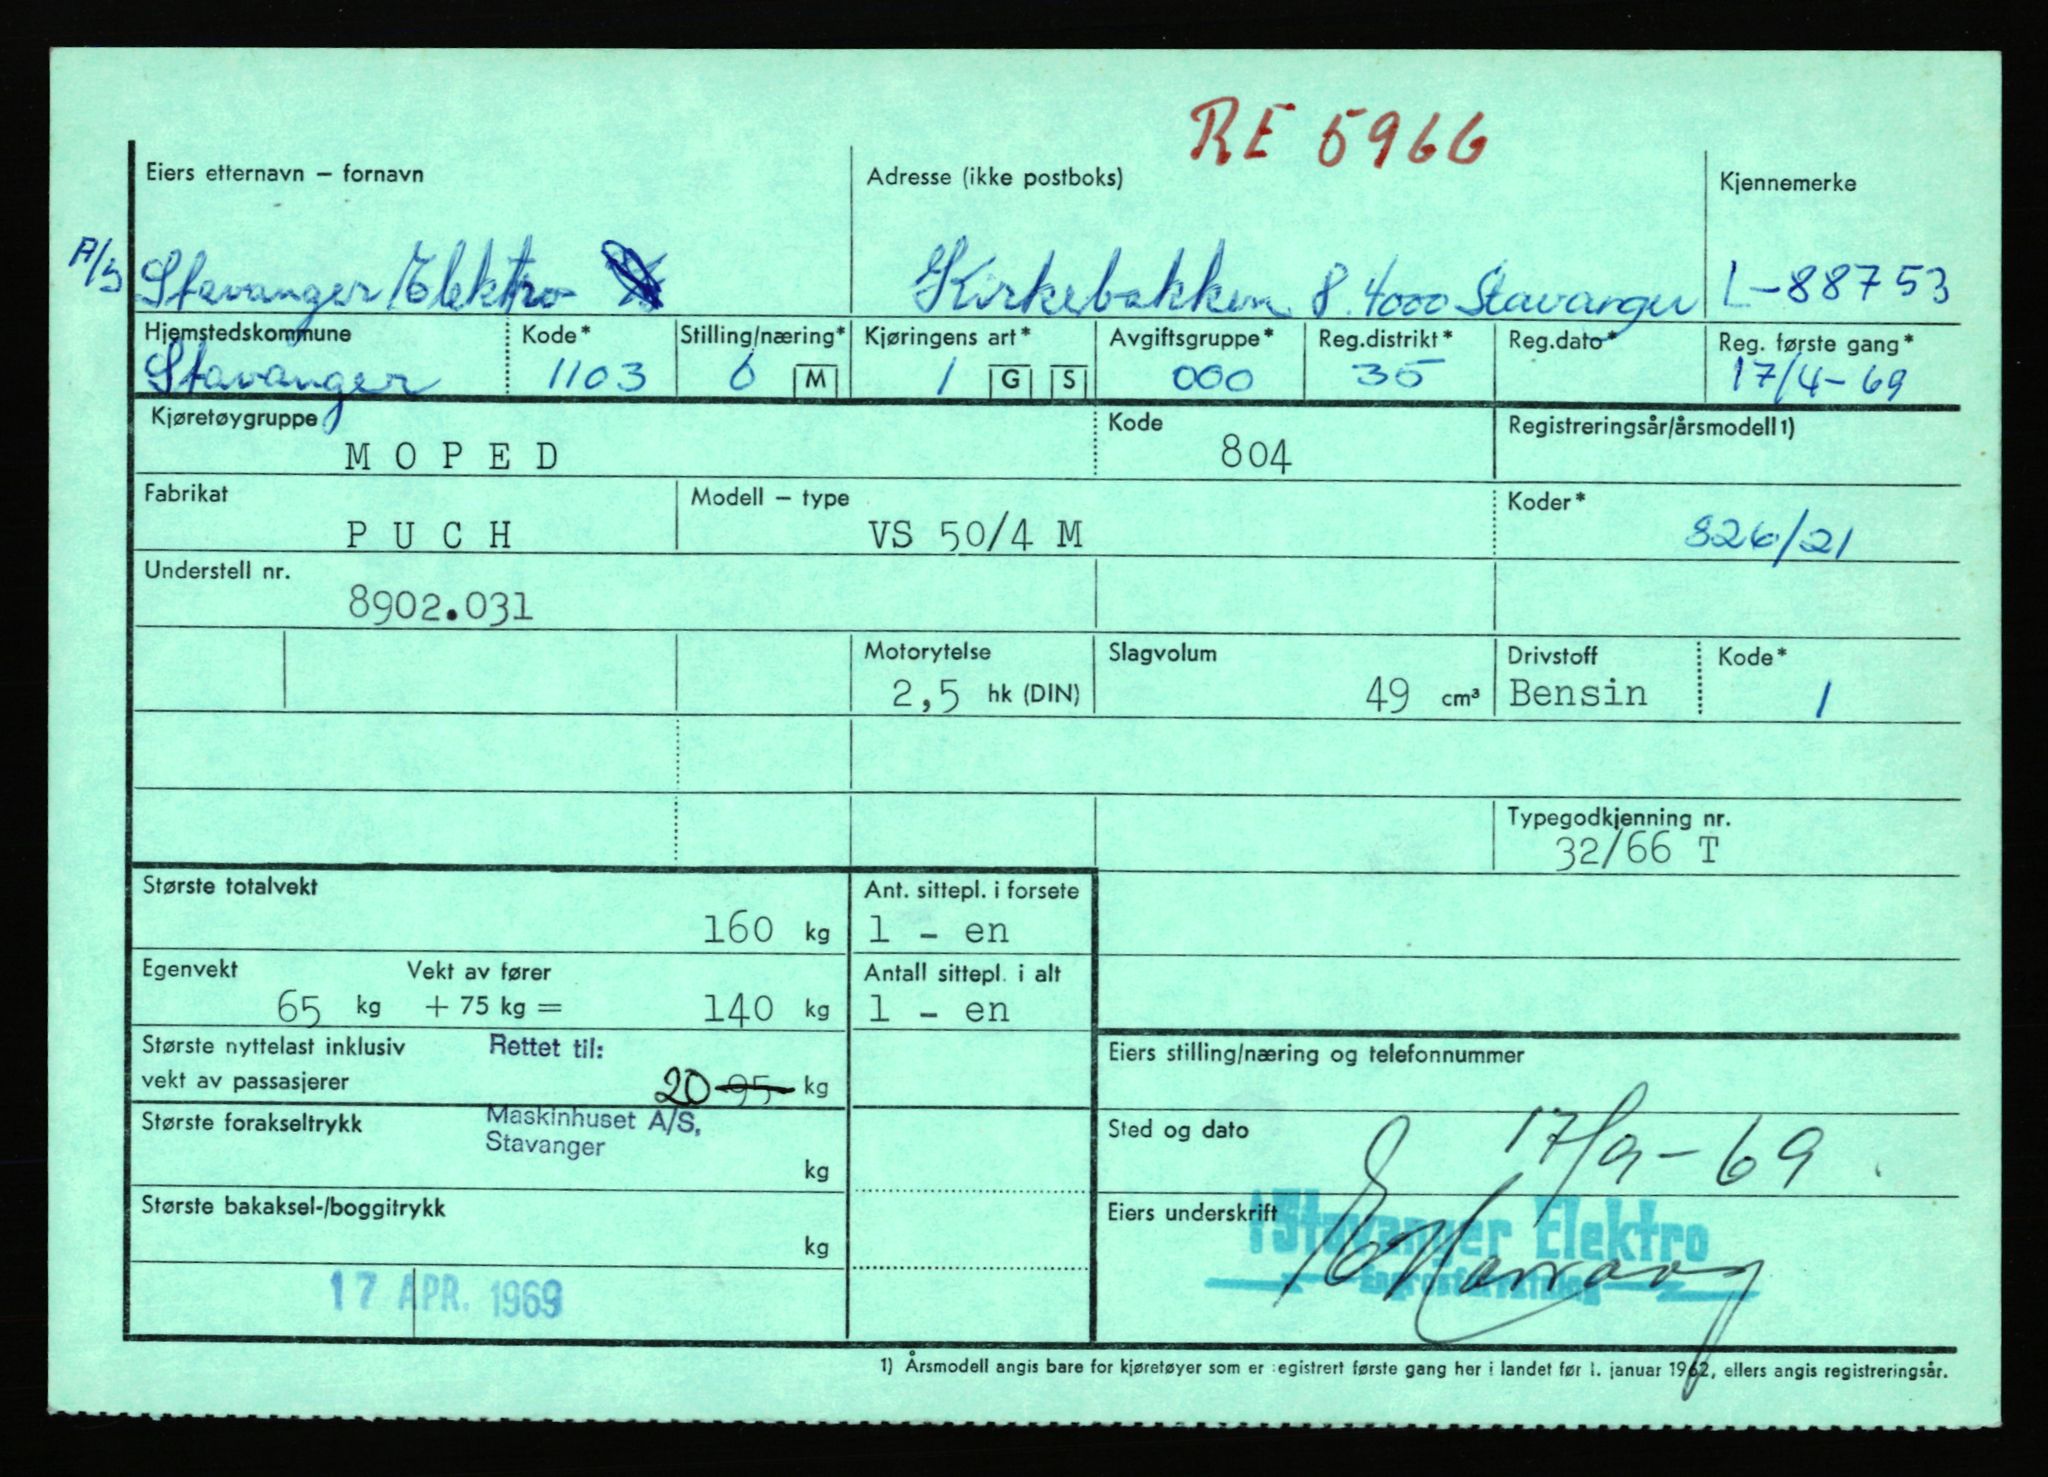 RE 5966
Eiers etternavn – fornavn
Adresse (ikke postboks)
Kjennemerke
A/S Stavanger Elektro
Kirkebakken 8. 4000 Stavanger
L-88753
Hjemstedskommune
Kode*
Stilling/næring*
Kjøringens art*
Avgiftsgruppe*
Reg.distrikt*
Reg.dato*
Reg. første gang*
Stavanger
1103
6 M
1 G S
000
35
17/4-69
Kjøretøygruppe
Kode
Registreringsår/årsmodell1)
MOPED
804
Fabrikat
Modell – type
Koder*
PUCH
VS 50/4 M
826/21
Understell nr.
8902.031
Motorytelse
Slagvolum
Drivstoff
Kode*
2,5 hk (DIN)
49 cm³
Bensin
1
Typegodkjenning nr.
32/66 T
Største totalvekt
Ant. sittepl. i forsete
160 kg
1 - en
Egenvekt
Vekt av fører
Antall sittepl. i alt
65 kg + 75 kg = 140 kg
1 - en
Største nyttelast inklusiv
vekt av passasjerer
Rettet til:
20 95 kg
Eiers stilling/næring og telefonnummer
Største forakseltrykk
Maskinhuset A/S,
Stavanger
kg
Sted og dato
17/9-69
Største bakaksel-/boggitrykk
kg
Eiers underskrift
Stavanger Elektro
17 APR. 1969
1) Årsmodell angis bare for kjøretøyer som er registrert første gang her i landet før 1. januar 1962, ellers angis registreringsår.